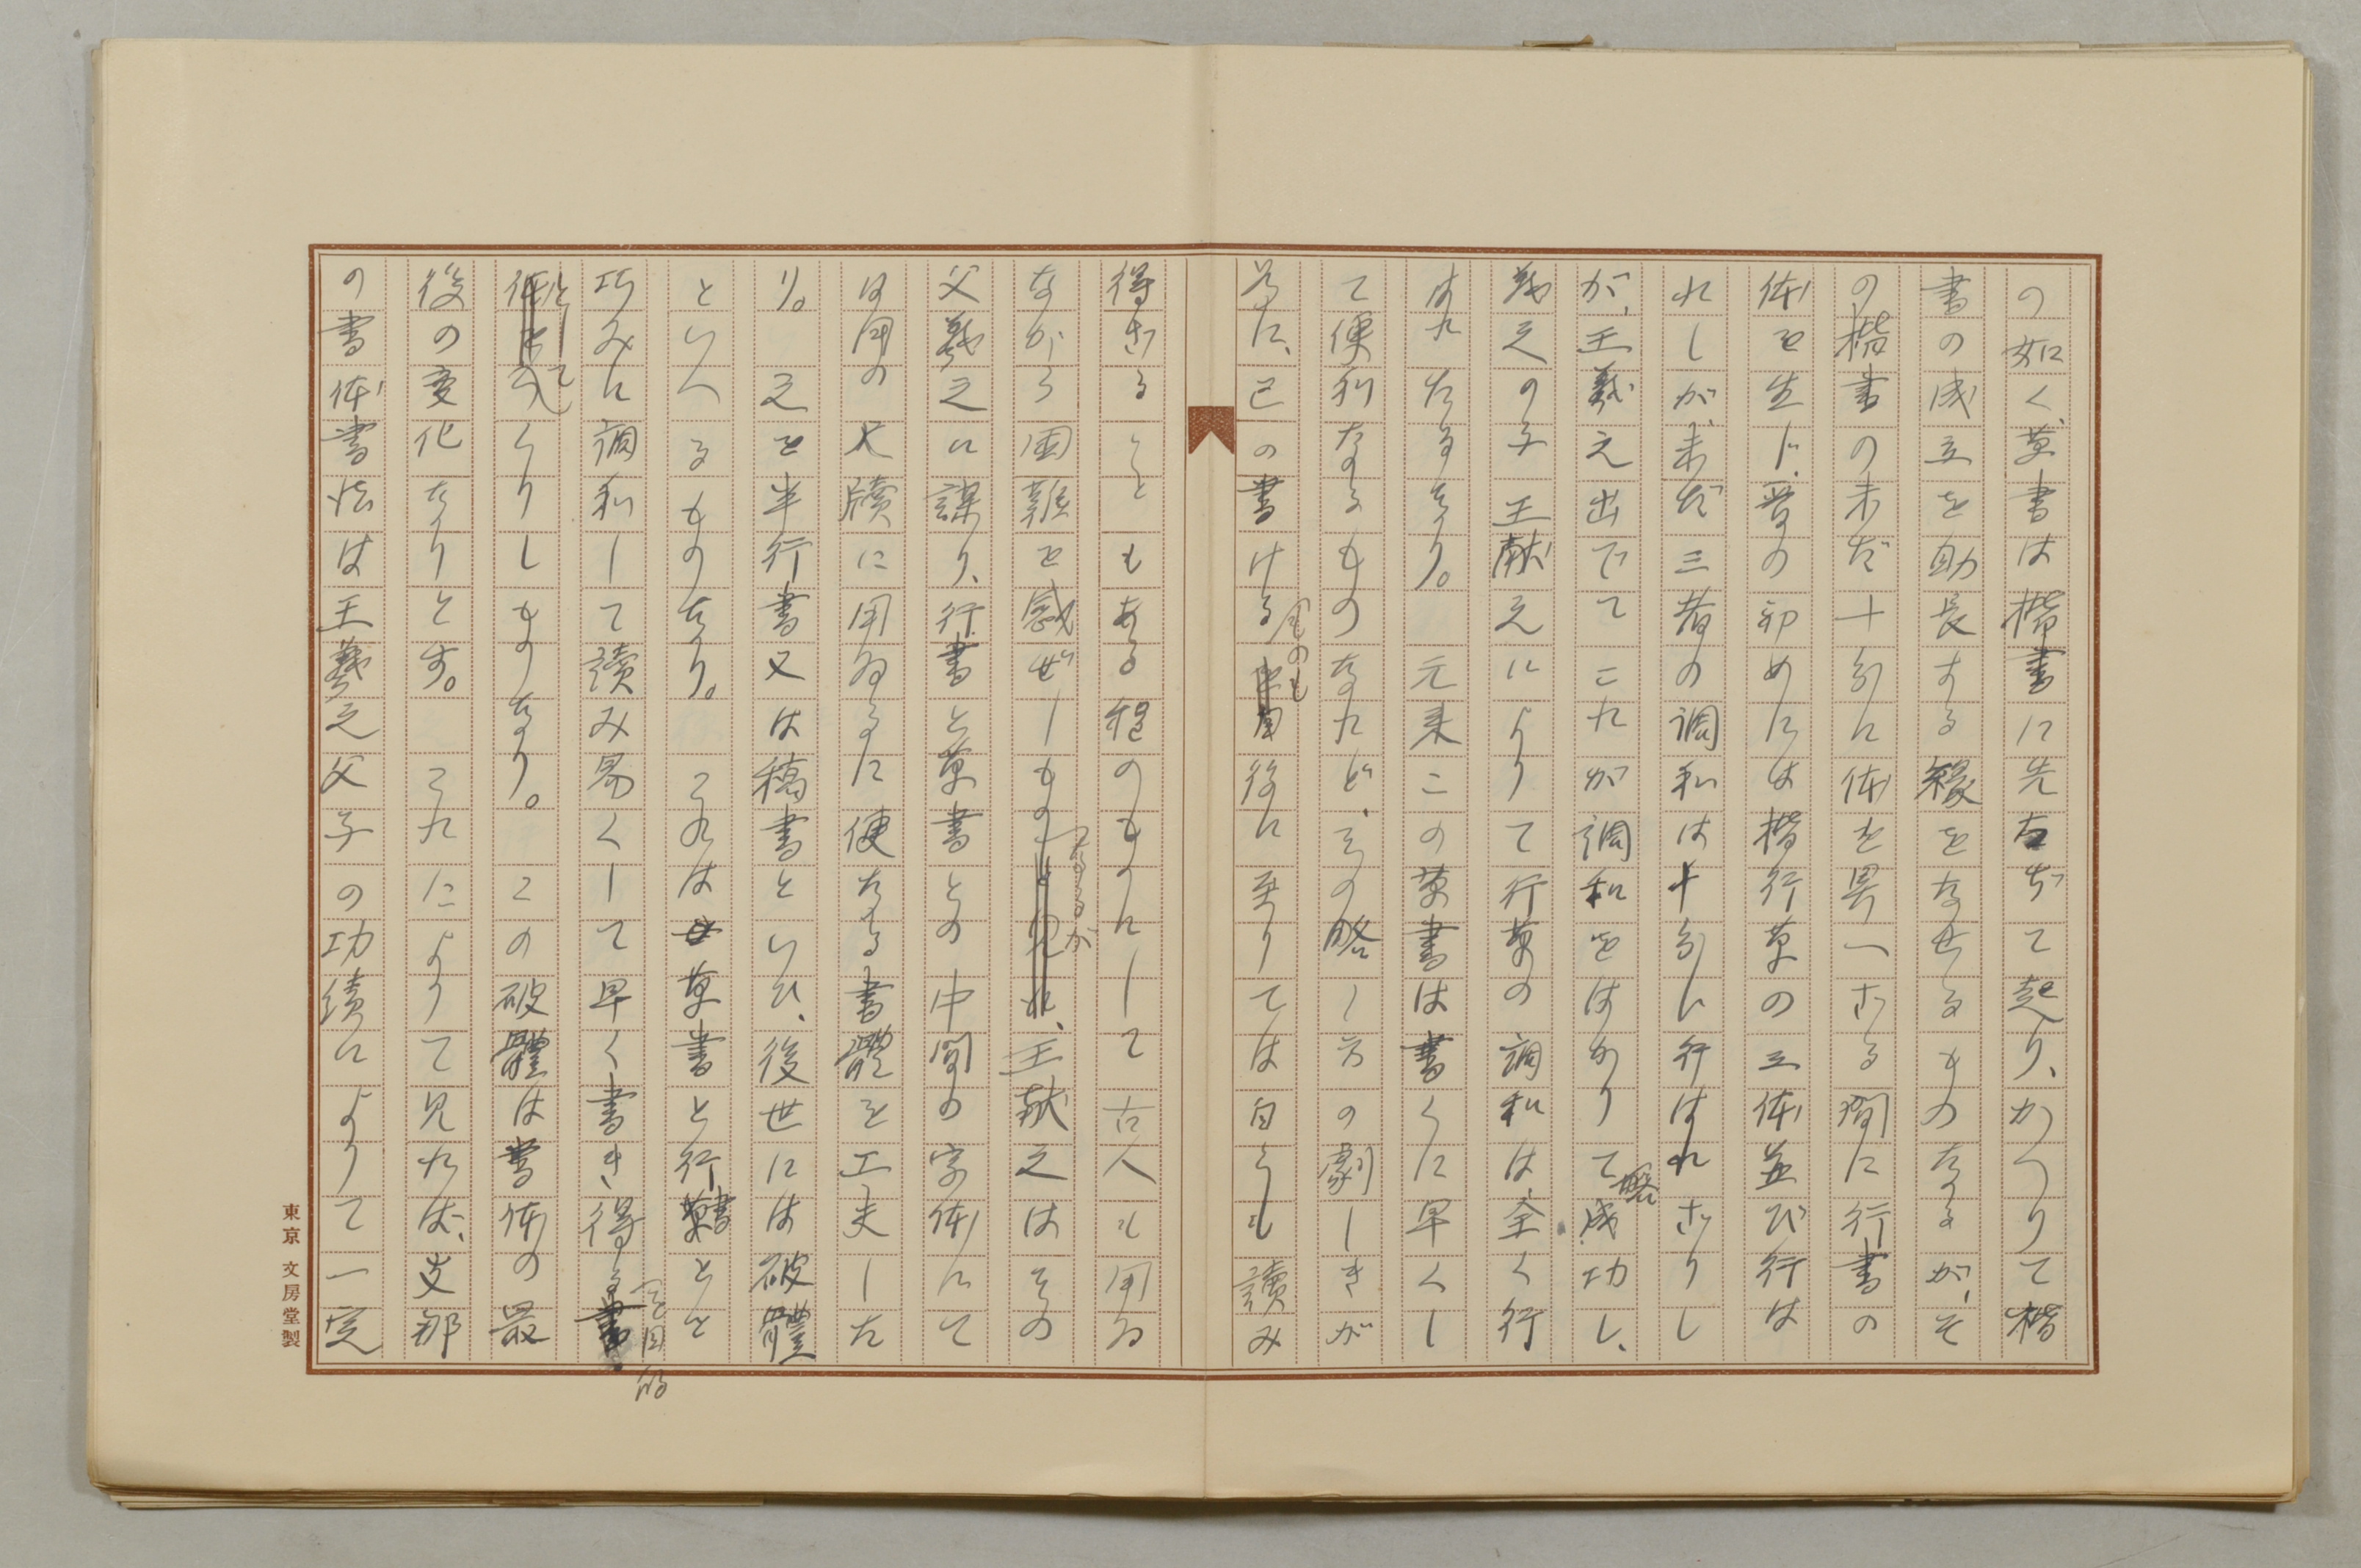 の如く、草書は楷書に先だちて起り、かへりて楷
書の成立を助長する縁をなせるものなるが、そ
の楷書の未だ十分に体を具へざる間に行書の
体を生じ、晋の初めには楷行草の三体並び行は
れしが、未だ三者の調和は十分に行はれざりし
が、王羲之出でてこれが調和をはかりて略成功し、
羲之の子王献之によりて行草の調和は全く行
はれたるなり。元来この草書は書くに早くし
て便利なるものなれど、その略し方の劇しきが
為に、己の書けるものも後に至りては自らも讀み
得ざることもある程のものにして古人も用ゐ
ながら困難を感ぜしものなるが、王献之はその
父羲之に謀り、行書と草書との中間の字体にて
日用の尺牘に用ゐるに便なる書體を工夫した
り。之を半行書又は稿書といひ、後世には破體
といへるものなり。これは草書と行書とを
巧みに調和して讀み易くして早く書き得るを目的
としてつくりしものなり。この破體は書体の最
後の変化なりとす。これによりて見れば、支那
の書体書法は王羲之父子の功績によりて一定
東京 文房堂製